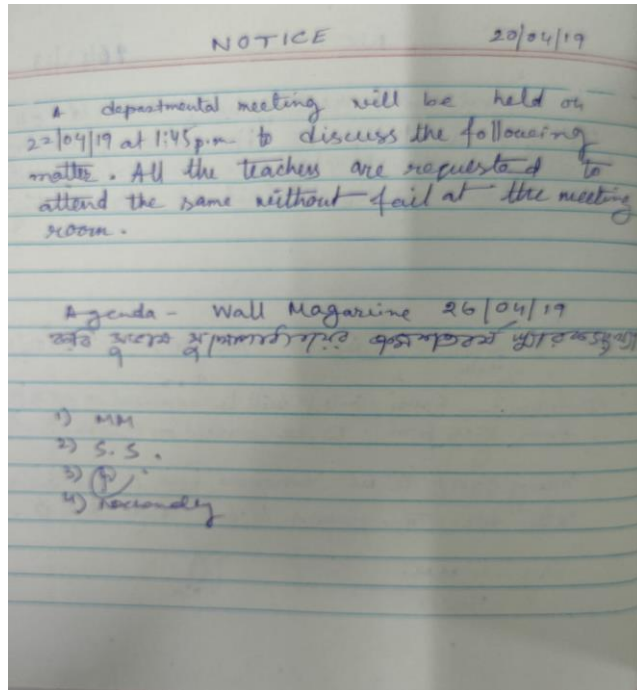 NOTICE 20/04/19
A departmental meeting will be held on
22/04/19 at 1:45 p.m. to discuss the following
matter. All the teachers are requested to
attend the same without fail at the meeting
room.
Agenda - Wall Magazine 26/04/19
1) MM
2) S. S.
3)
4)